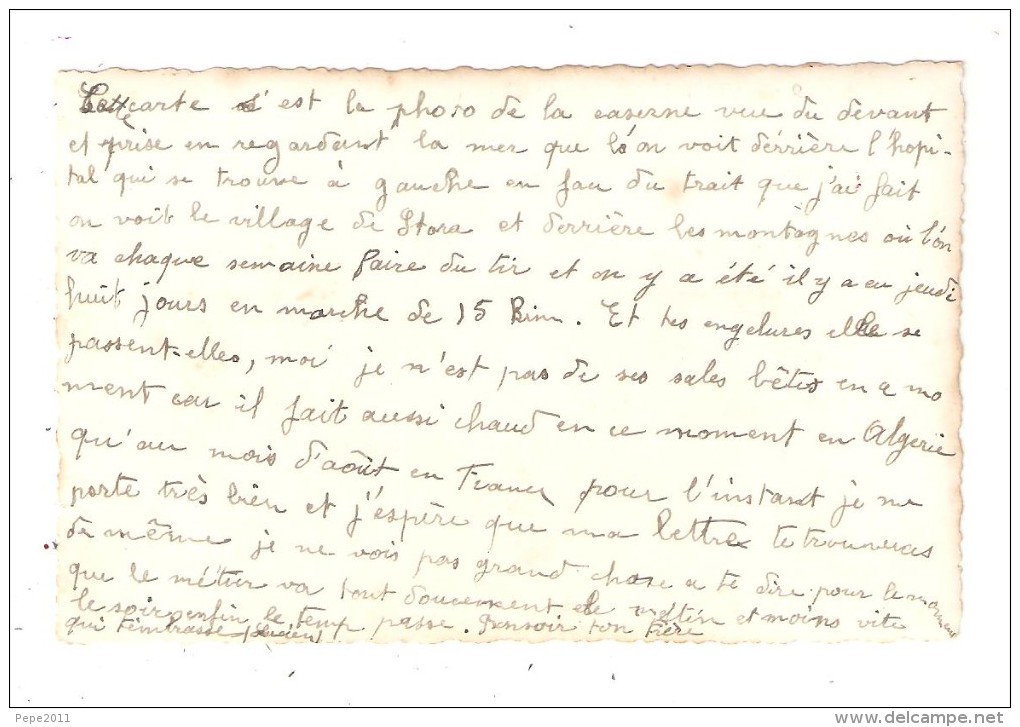 Cette carte c'est la photo de la caserne vue du devant
et prise en regardant la mer que l'on voit dérrière l'hopi-
tal qui se trouve à gauche en fau du trait que j'ai fait
on voit le village de Stora et derrière les montagnes où l'on
va chaque semaine faire du tir et on y a été il y a eu jeudi
huit jours en marche de 15 Kim. Et tes engelures elle se
passent-elles, moi je n'est pas de ses sales bêtes en a mo
ment car il fait aussi chaud en ce moment en Algerie
qu'au mois d'août en France pour l'instant je me
porte très bien et j'espère que ma lettre te trouveras
de même je ne vois pas grand chose a te dire pour le moment
que le métier va tout doucement le matin et moins vite
le soir enfin le temp passe. Bonsoir ton Frère
qui t'embrasse (Lucien)
Pepe2011
www.delcampe.net